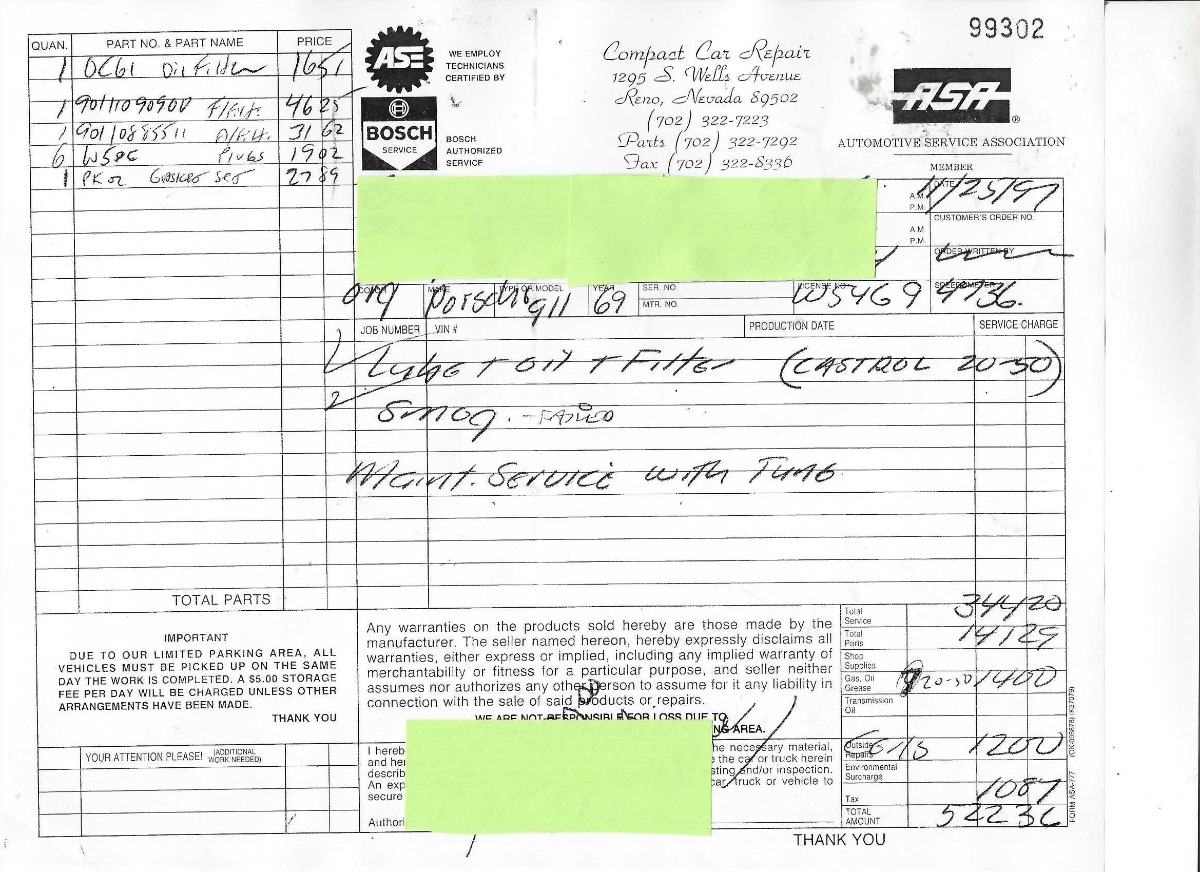 99302
QUAN. PART NO. & PART NAME PRICE
1 OC61 Oil Filter 1651
1 90111090900 F/Filt. 4625
1 90110885511 A/Filt. 3162
6 W5DC Plugs 1902
1 PK or Gasket Set 2789
TOTAL PARTS
ASE
WE EMPLOY
TECHNICIANS
CERTIFIED BY
BOSCH
SERVICE
BOSCH
AUTHORIZED
SERVICE
Compact Car Repair
1295 S. Wells Avenue
Reno, Nevada 89502
(702) 322-7223
Parts (702) 322-7292
Fax (702) 322-8336
ASA®
AUTOMOTIVE SERVICE ASSOCIATION
MEMBER
A.M.
P.M.
DATE 11/25/97
CUSTOMER'S ORDER NO.
A.M.
P.M.
ORDER WRITTEN BY
COLOR MAKE TYPE OR MODEL YEAR SER. NO. LICENSE NO. SPEEDOMETER
org Porsche 911 69 MTR. NO. W5469 4736.
JOB NUMBER VIN # PRODUCTION DATE SERVICE CHARGE
1 Lube + Oil + Filter (CASTROL 20-50)
2 Smog. - FAILED
Maint. Service with Tune
IMPORTANT
DUE TO OUR LIMITED PARKING AREA, ALL
VEHICLES MUST BE PICKED UP ON THE SAME
DAY THE WORK IS COMPLETED. A $5.00 STORAGE
FEE PER DAY WILL BE CHARGED UNLESS OTHER
ARRANGEMENTS HAVE BEEN MADE.
THANK YOU
YOUR ATTENTION PLEASE! (ADDITIONAL WORK NEEDED)
Any warranties on the products sold hereby are those made by the
manufacturer. The seller named hereon, hereby expressly disclaims all
warranties, either express or implied, including any implied warranty of
merchantability or fitness for a particular purpose, and seller neither
assumes nor authorizes any other person to assume for it any liability in
connection with the sale of said products or repairs.
WE ARE NOT RESPONSIBLE FOR LOSS DUE TO
NG AREA.
I hereb he necessary material,
and her e the car or truck herein
describ sting and/or inspection.
An exp car, truck or vehicle to
secure
Authori
Total Service 34420
Total Parts 14129
Shop Supplies
Gas, Oil Grease 20-50 1400
Transmission Oil
Outside Repairs 1200
Environmental Surcharge
Tax 1087
TOTAL AMOUNT 52236
THANK YOU
FORM ASA-777